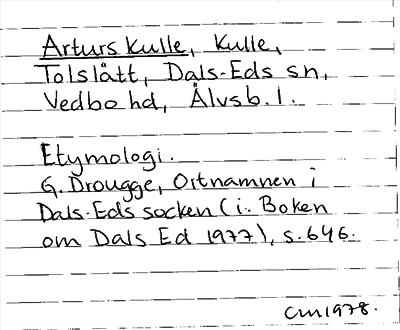 Arturs kulle, kulle,
Tolslätt, Dals-Eds sn,
Vedbo hd, Älvsb. l.
Etymologi.
G. Drougge, Ortnamnen i
Dals-Eds socken (i: Boken
om Dals Ed 1977), s. 646.
CM 1978.